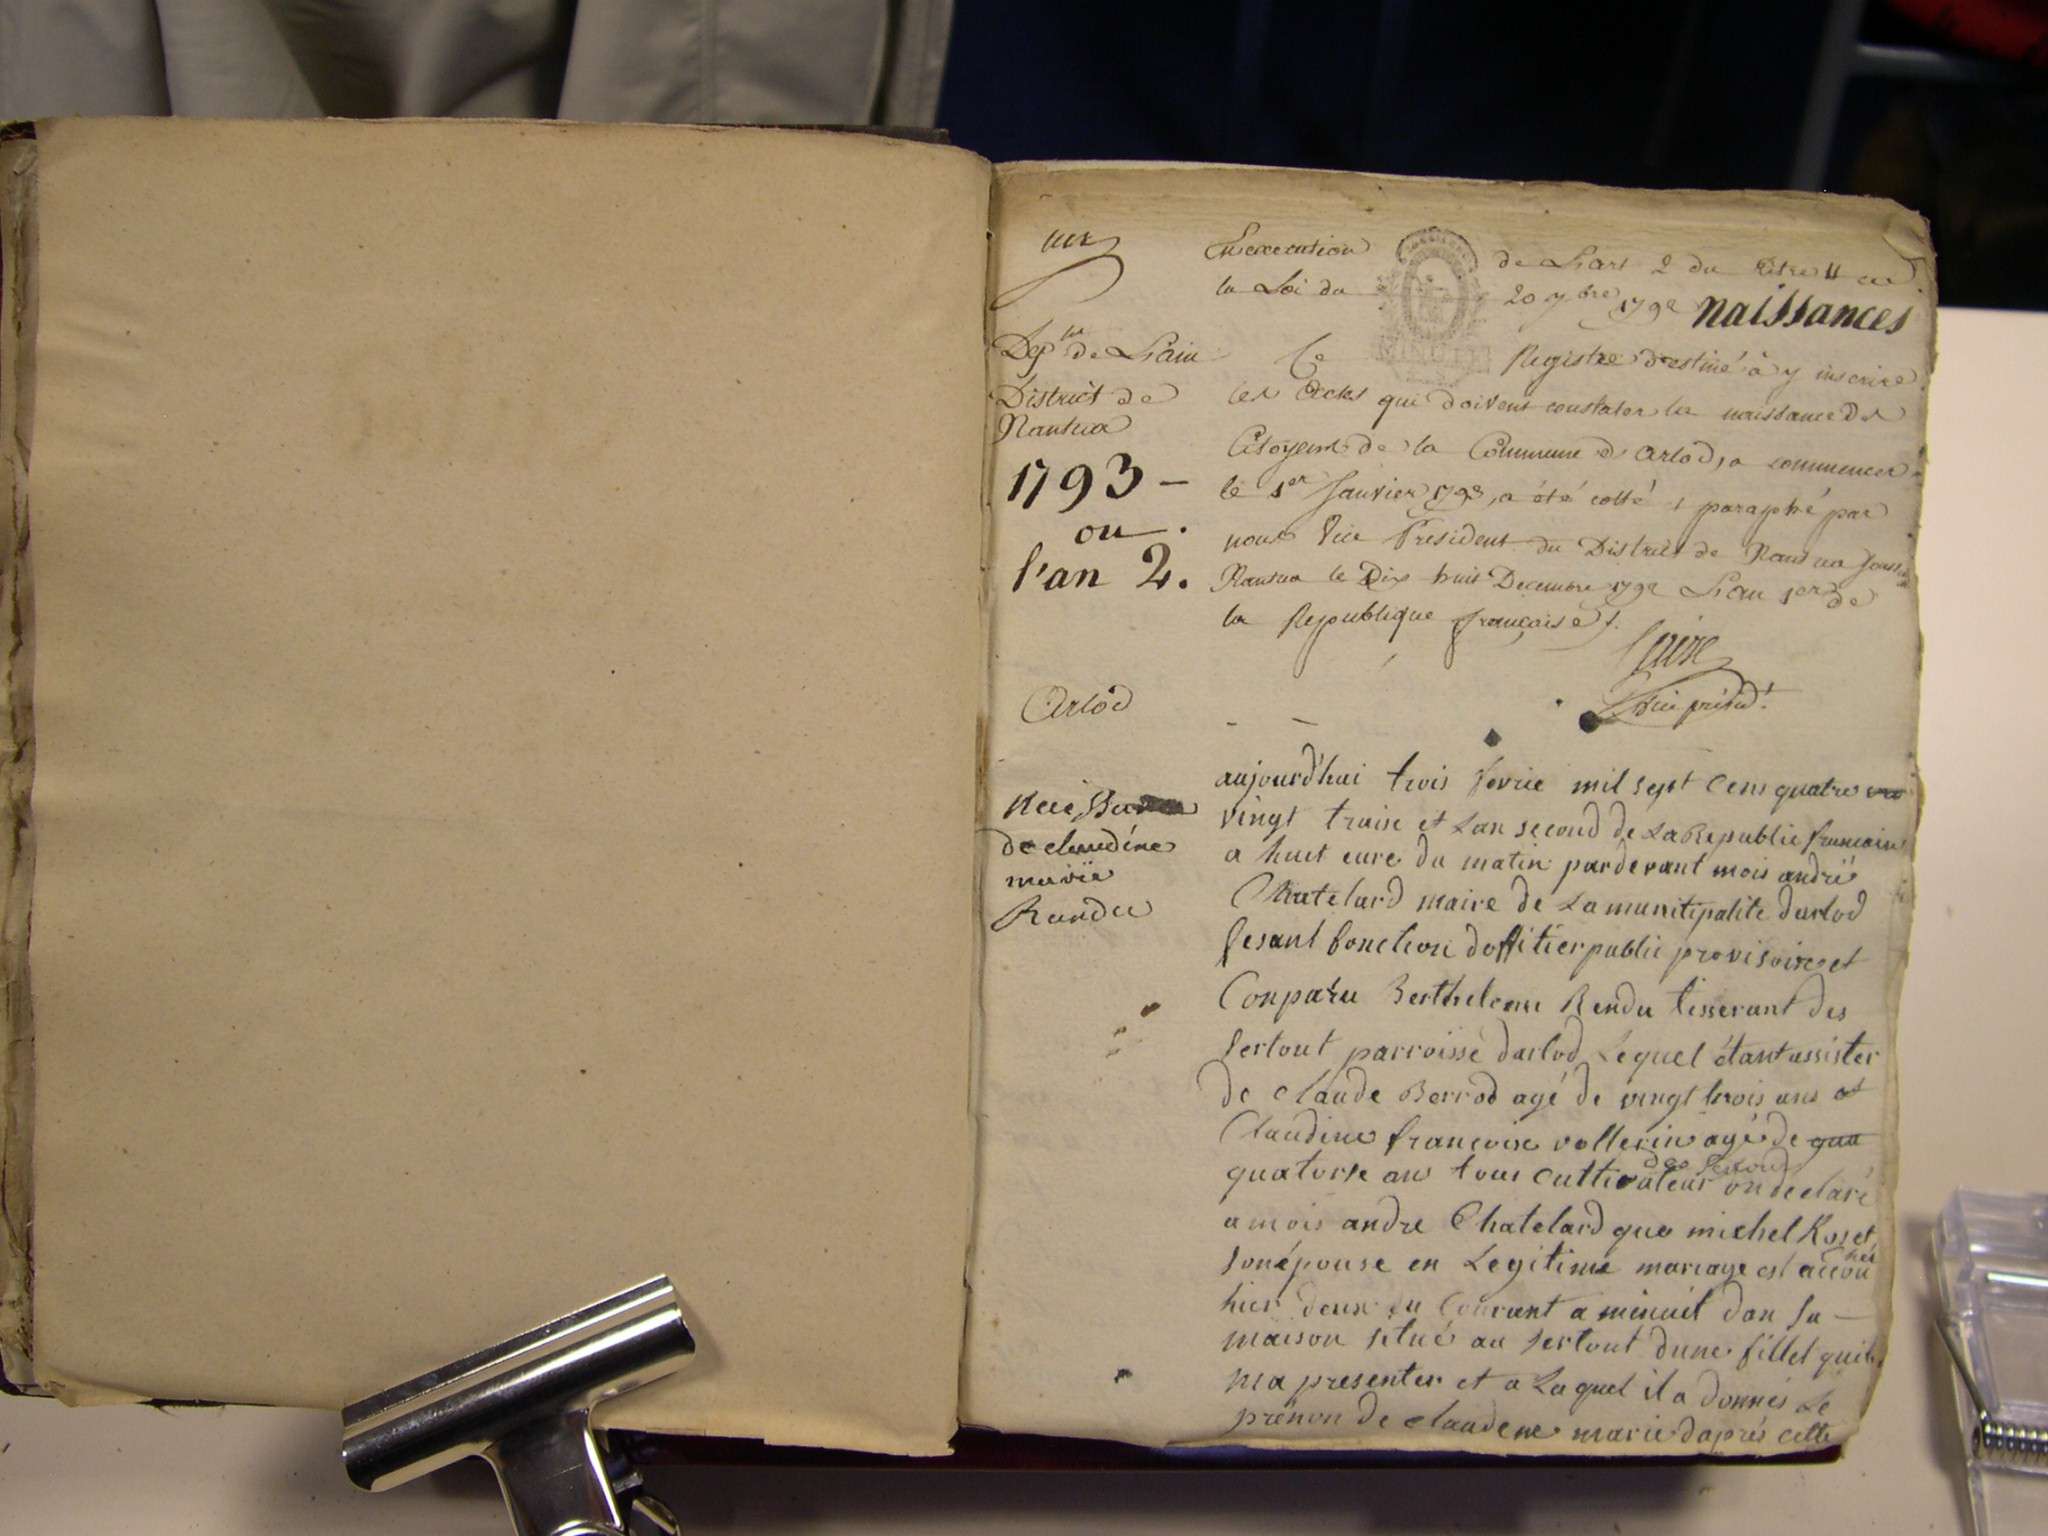 En execution de L'art 2 du titre II de
la Loi du 20 7bre 1792
naissances
Dept de L'ain
District de
Nantua
1793 -
ou .
l'an 2.
Ce Registre destiné à y inscrire
les Actes qui doivent constater la naissance des
Citoyens de la Commune d'Arlod, a commencer
le 1er Janvier 1793, a été cotté & paraphé par
nous Vice President du District de Nantua
Nantua le Dix huit Decembre 1792 L'an 1er de
la Republique françaisse ./.
vice présidt
Arlod
Naissance
de claudine
marie
Randu
aujourd'hui trois fevrie mil sept Cens quatre
vingt traise et Lan second de La Republic francaise
a huit eure du matin pardevant mois andrié
Chatelard maire de La munitipalite darlod
fesant fonction doffitier public provisoire et
Conparu Berthelemi Rendu tisserant des
Sertout parroisse darlod Lequel étant assister
de claude Berrod agé de vingt trois ans et
Claudine francoise vollerin agé de qua
des Sertout
quatorse an tous cuttivateur on declaré
a mois andre Chatelard que michel Roset
son épouse en Legitime mariage est accou
hée
hier deux du Courant a minuit dan sa -
maison situé au sertout dune fillet quil
ma presenter et a Laquel il a donnés Le
prénon de claudene marie daprés cette